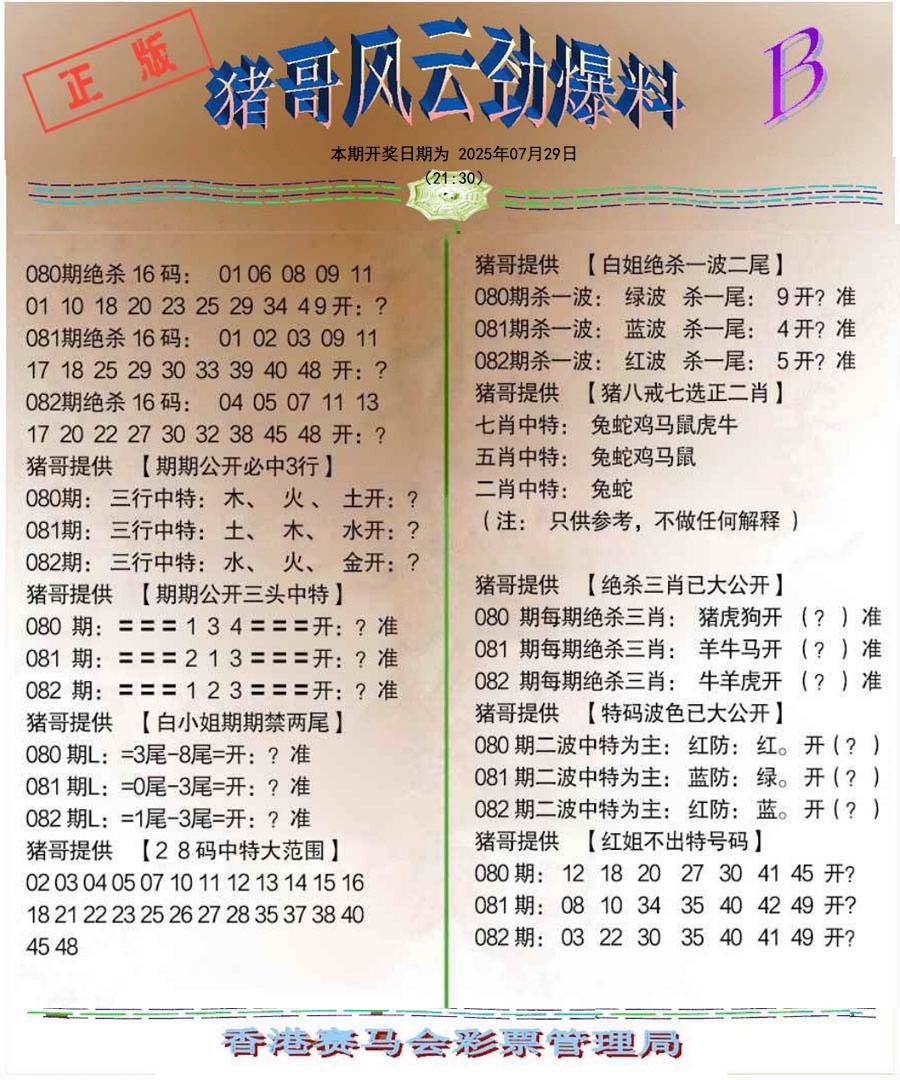 正版
猪哥风云劲爆料
B
本期开奖日期为 2025年07月29日
(21:30)
080期绝杀16码: 01 06 08 09 11
01 10 18 20 23 25 29 34 49开:?
081期绝杀16码: 01 02 03 09 11
17 18 25 29 30 33 39 40 48 开:?
082期绝杀16码: 04 05 07 11 13
17 20 22 27 30 32 38 45 48 开:?
猪哥提供 【期期公开必中3行】
080期: 三行中特: 木、 火、 土开:?
081期: 三行中特: 土、 木、 水开:?
082期: 三行中特: 水、 火、 金开:?
猪哥提供 【期期公开三头中特】
080 期: ===134===开:? 准
081 期: ===213===开:? 准
082 期: ===123===开:? 准
猪哥提供 【白小姐期期禁两尾】
080期L: =3尾-8尾=开:? 准
081期L: =0尾-3尾=开:? 准
082期L: =1尾-3尾=开:? 准
猪哥提供 【28码中特大范围】
02 03 04 05 07 10 11 12 13 14 15 16
18 21 22 23 25 26 27 28 35 37 38 40
45 48
猪哥提供 【白姐绝杀一波二尾】
080期杀一波: 绿波 杀一尾: 9开? 准
081期杀一波: 蓝波 杀一尾: 4开? 准
082期杀一波: 红波 杀一尾: 5开? 准
猪哥提供 【猪八戒七选正二肖】
七肖中特: 兔蛇鸡马鼠虎牛
五肖中特: 兔蛇鸡马鼠
二肖中特: 兔蛇
(注: 只供参考,不做任何解释)
猪哥提供 【绝杀三肖已大公开】
080 期每期绝杀三肖: 猪虎狗开 (?)准
081 期每期绝杀三肖: 羊牛马开 (?)准
082 期每期绝杀三肖: 牛羊虎开 (?)准
猪哥提供 【特码波色已大公开】
080期二波中特为主: 红防: 红。 开(?)
081期二波中特为主: 蓝防: 绿。 开(?)
082期二波中特为主: 红防: 蓝。 开(?)
猪哥提供 【红姐不出特号码】
080期: 12 18 20 27 30 41 45 开?
081期: 08 10 34 35 40 42 49 开?
082期: 03 22 30 35 40 41 49 开?
香港赛马会彩票管理局